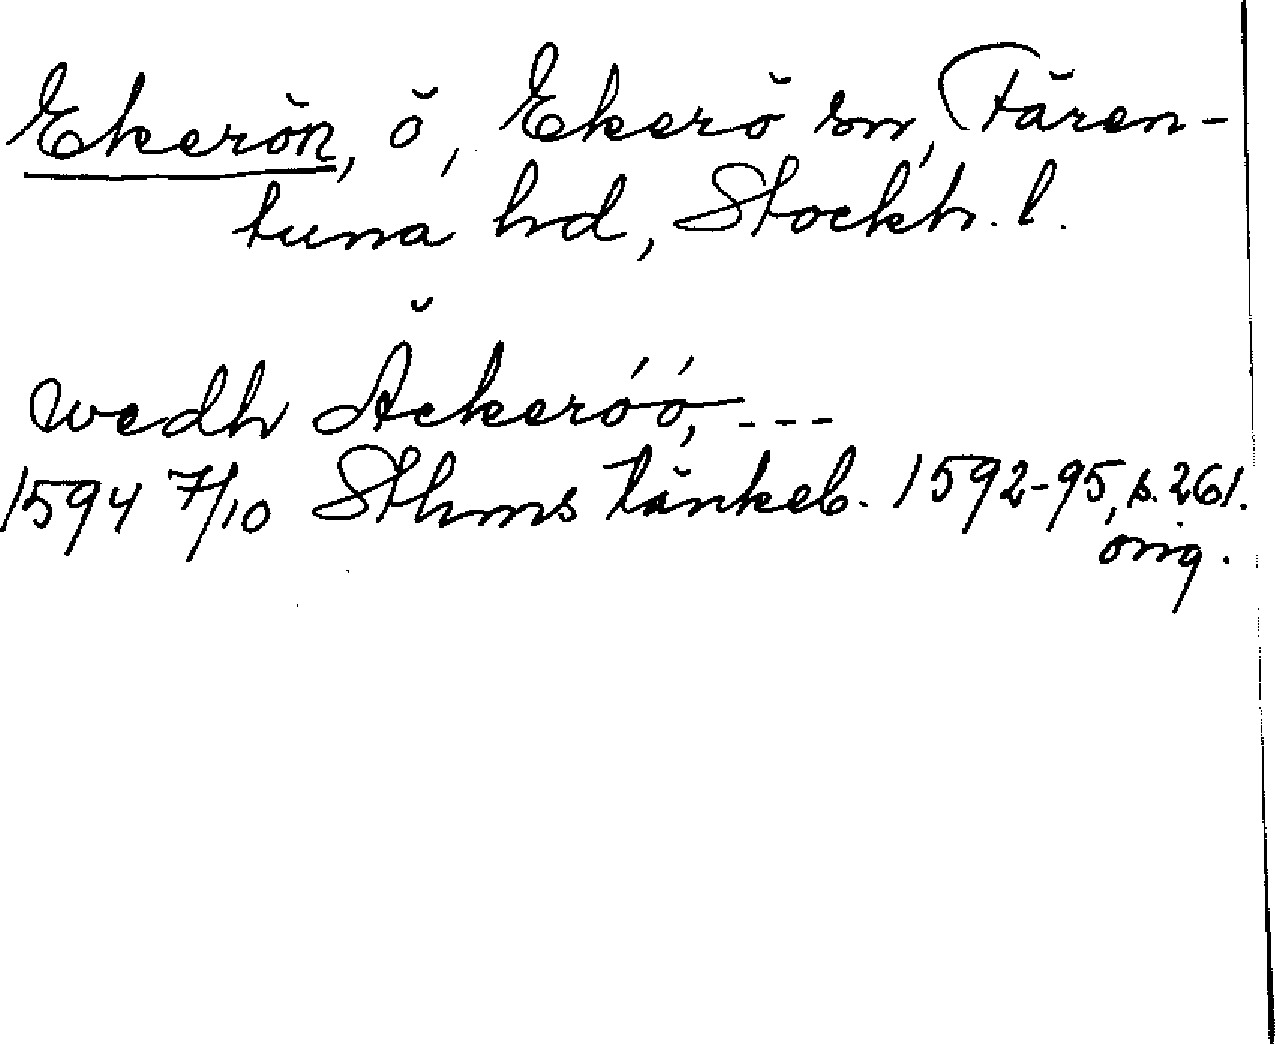 Ekerön, ö, Ekerö sn, Fären-
tuna hd, Stockh. l.
wedh Äckeröö, ---
1594 7/10 Sthms tänkeb. 1592-95, s. 261.
orig.